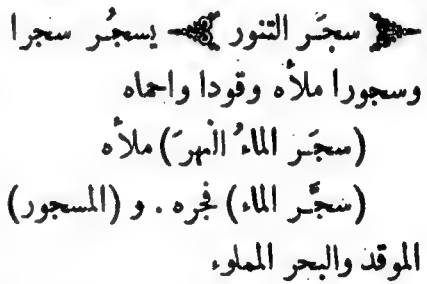 سجَر التنور يسجُر سجرا
وسجورا ملأه وقودا واحماه
(سجَر الماءُ النهرَ) ملأه
(سجَّر الماء) فجره . و (المسجور)
الموقد والبحر المملوء